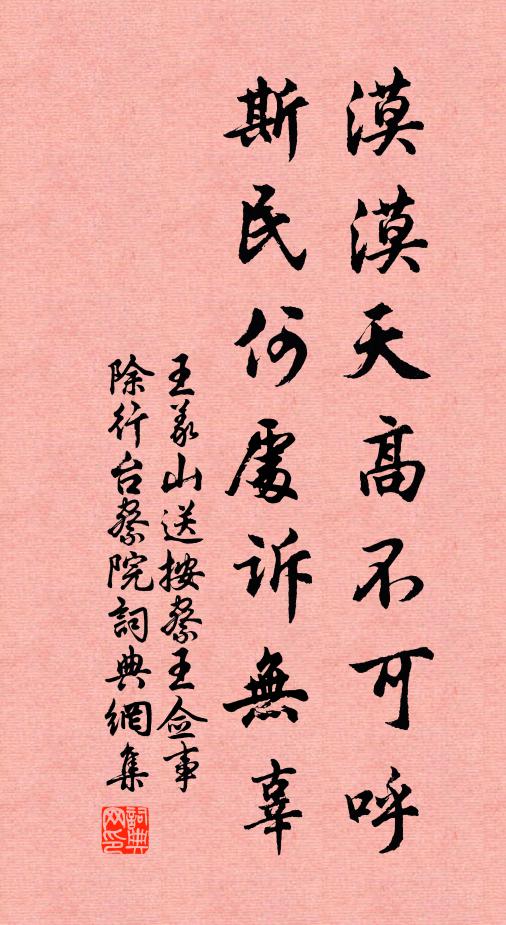 漠漠天高不可呼
斯民何處訴無辜
王義山送按察王僉事
除行台察院詞典網集
詞典网印